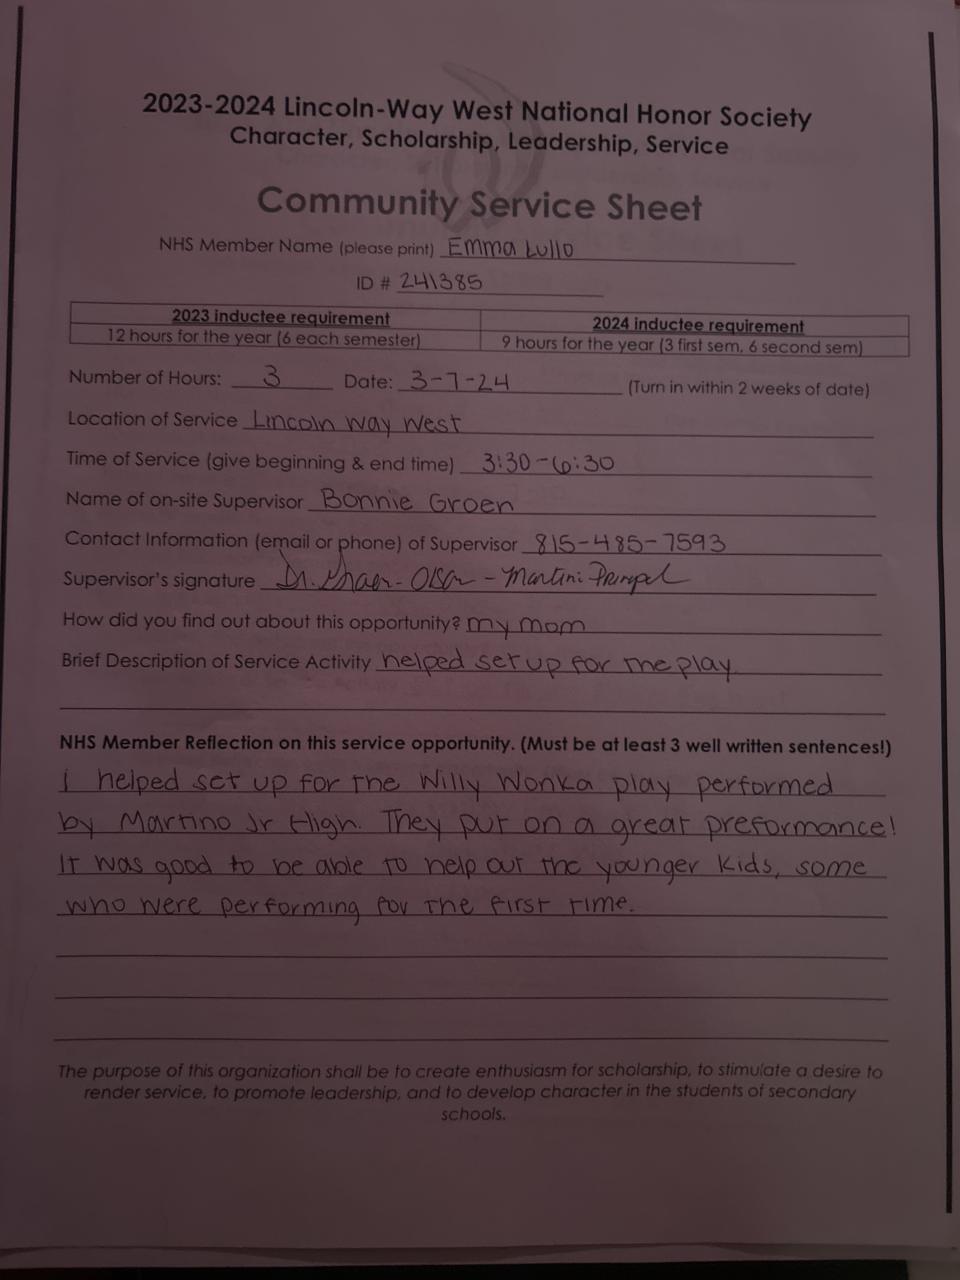 2023-2024 Lincoln-Way West National Honor Society
Character, Scholarship, Leadership, Service
Community Service Sheet
NHS Member Name (please print) Emma Lullo
ID # 241385
2023 inductee requirement
12 hours for the year (6 each semester)
2024 inductee requirement
9 hours for the year (3 first sem, 6 second sem)
Number of Hours: 3 Date: 3-7-24 (Turn in within 2 weeks of date)
Location of Service Lincoln Way West
Time of Service (give beginning & end time) 3:30-6:30
Name of on-site Supervisor Bonnie Groen
Contact Information (email or phone) of Supervisor 815-485-7593
Supervisor's signature Dr. - Martino Principal
How did you find out about this opportunity? my mom
Brief Description of Service Activity helped set up for the play
NHS Member Reflection on this service opportunity. (Must be at least 3 well written sentences!)
I helped set up for the Willy Wonka play performed
by Martino Jr High. They put on a great preformance!
It was good to be able to help out the younger kids, some
who were performing for the first time.
The purpose of this organization shall be to create enthusiasm for scholarship, to stimulate a desire to
render service, to promote leadership, and to develop character in the students of secondary
schools.